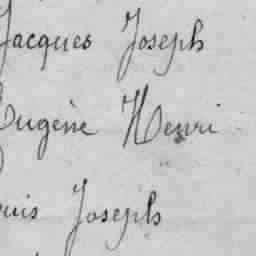 Jacques Joseph
Eugène Henri
ouis Joseph